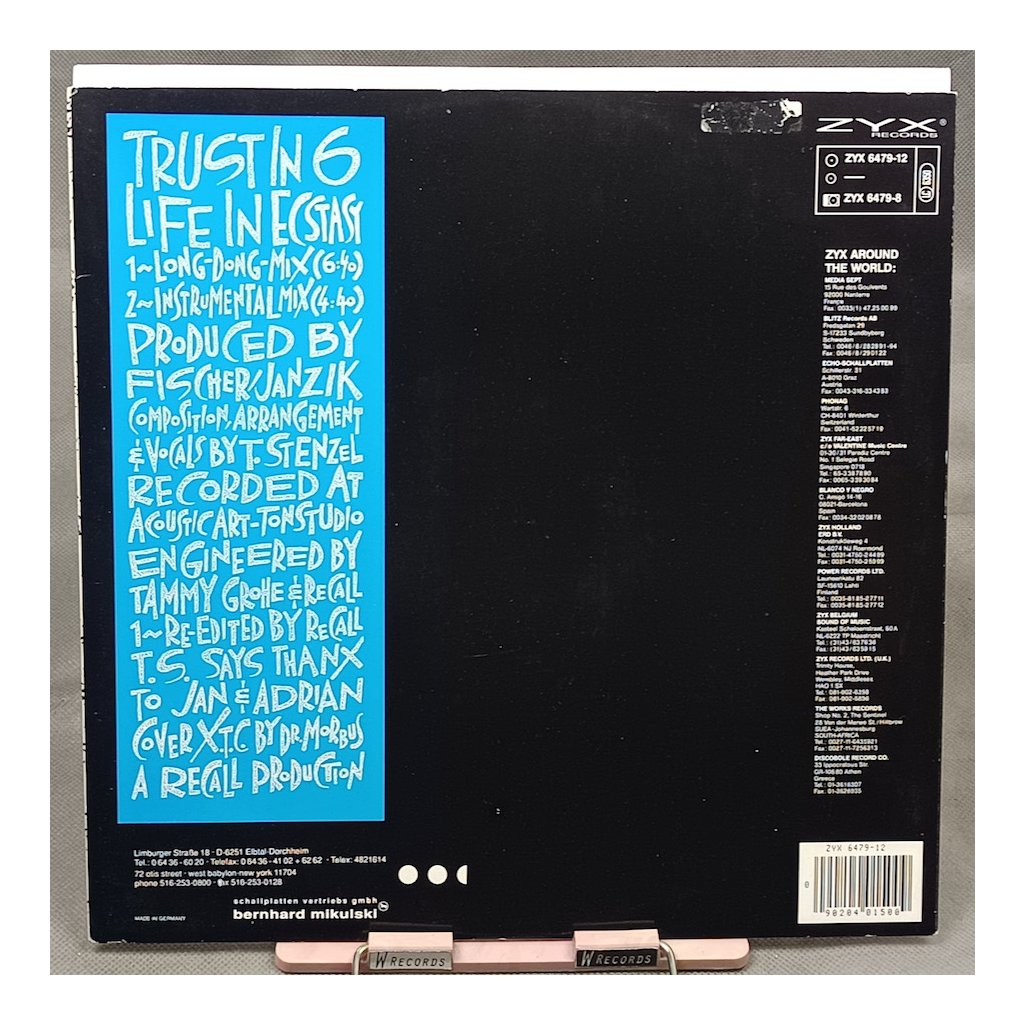 TRUST IN 6
LIFE IN ECSTASY
1~ LONG-DONG-MIX (6:40)
2~ INSTRUMENTAL MIX (4:40)
PRODUCED BY
FISCHER/JANZIK
COMPOSITION, ARRANGEMENT
& VOCALS BY T. STENZEL
RECORDED AT
ACOUSTIC ART-TONSTUDIO
ENGINEERED BY
TAMMY GROHE & RECALL
1~ RE-EDITED BY RECALL
T.S. SAYS THANX
TO JAN & ADRIAN
COVER X.T.C BY DR. MORBUS
A RECALL PRODUCTION
Limburger Straße 18 · D-6251 Elbtal-Dorchheim
Tel.: 0 64 36 - 60 20 · Telefax: 0 64 36 - 41 02 + 62 62 · Telex: 4821614
72 otis street · west babylon-new york 11704
phone 516-253-0800 · fax 516-253-0128
schallplatten vertriebs gmbh
bernhard mikulski
MADE IN GERMANY
ZYX®
RECORDS
ZYX 6479-12
—
ZYX 6479-8
ZYX AROUND
THE WORLD:
MEDIA SEPT
15 Rue des Goulvents
92000 Nanterre
France
Fax: 0033(1) 47.25 00 99
BLITZ Records AB
Fredsgatan 29
S-17233 Sundbyberg
Schweden
Tel.: 0046/8/28 28 91-94
Fax: 0046/8/29 01 22
ECHO-SCHALLPLATTEN
Schillerstr. 31
A-8010 Graz
Austria
Fax: 0043-316-33 43 83
PHONAG
Wartstr. 6
CH-8401 Winterthur
Switzerland
Fax: 0041-52 22 57 19
ZYX FAR-EAST
c/o VALENTINE Music Centre
01-30/31 Paradiz Centre
No. 1 Selegie Road
Singapore 0718
Tel.: 65-3 38 78 90
Fax: 0065-3 39 30 84
BLANCO Y NEGRO
C. Amigo 14-16
08021-Barcelona
Spain
Fax: 0034-32 02 08 78
ZYX HOLLAND
ERD B.V.
Konstruktieweg 4
NL-6074 NJ Roermond
Tel.: 0031-4750-2 44 89
Fax: 0031-4750-2 59 99
POWER RECORDS LTD.
Launeenkatu 82
SF-15610 Lahti
Finland
Tel.: 0035-81 85-2 77 11
Fax: 0035-81 85-2 77 12
ZYX BELGIUM
SOUND OF MUSIC
Kasteel Schaloenstraat, 60A
NL-6222 TP Maastricht
Tel.: (31)43/63 76 36
Fax: (31)43/63 59 15
ZYX RECORDS LTD. (U.K.)
Trinity House,
Heather Park Drive
Wembley, Middlesex
HAO 1 SX
Tel.: 081-902-6398
Fax: 081-902-5896
THE WORKS RECORDS
Shop No. 2, The Sentinel
28 Von der Merwe St./Hillbrow
SUEA-Johannesburg
SOUTH-AFRICA
Tel.: 0027-11-6435921
Fax: 0027-11-7256313
DISCOBOLE RECORD CO.
33 Ippocratous Str.
GR-10680 Athen
Greece
Tel.: 01-3616307
Fax: 01-3626935
ZYX 6479-12
0 90204 01500
W RECORDS
W RECORDS